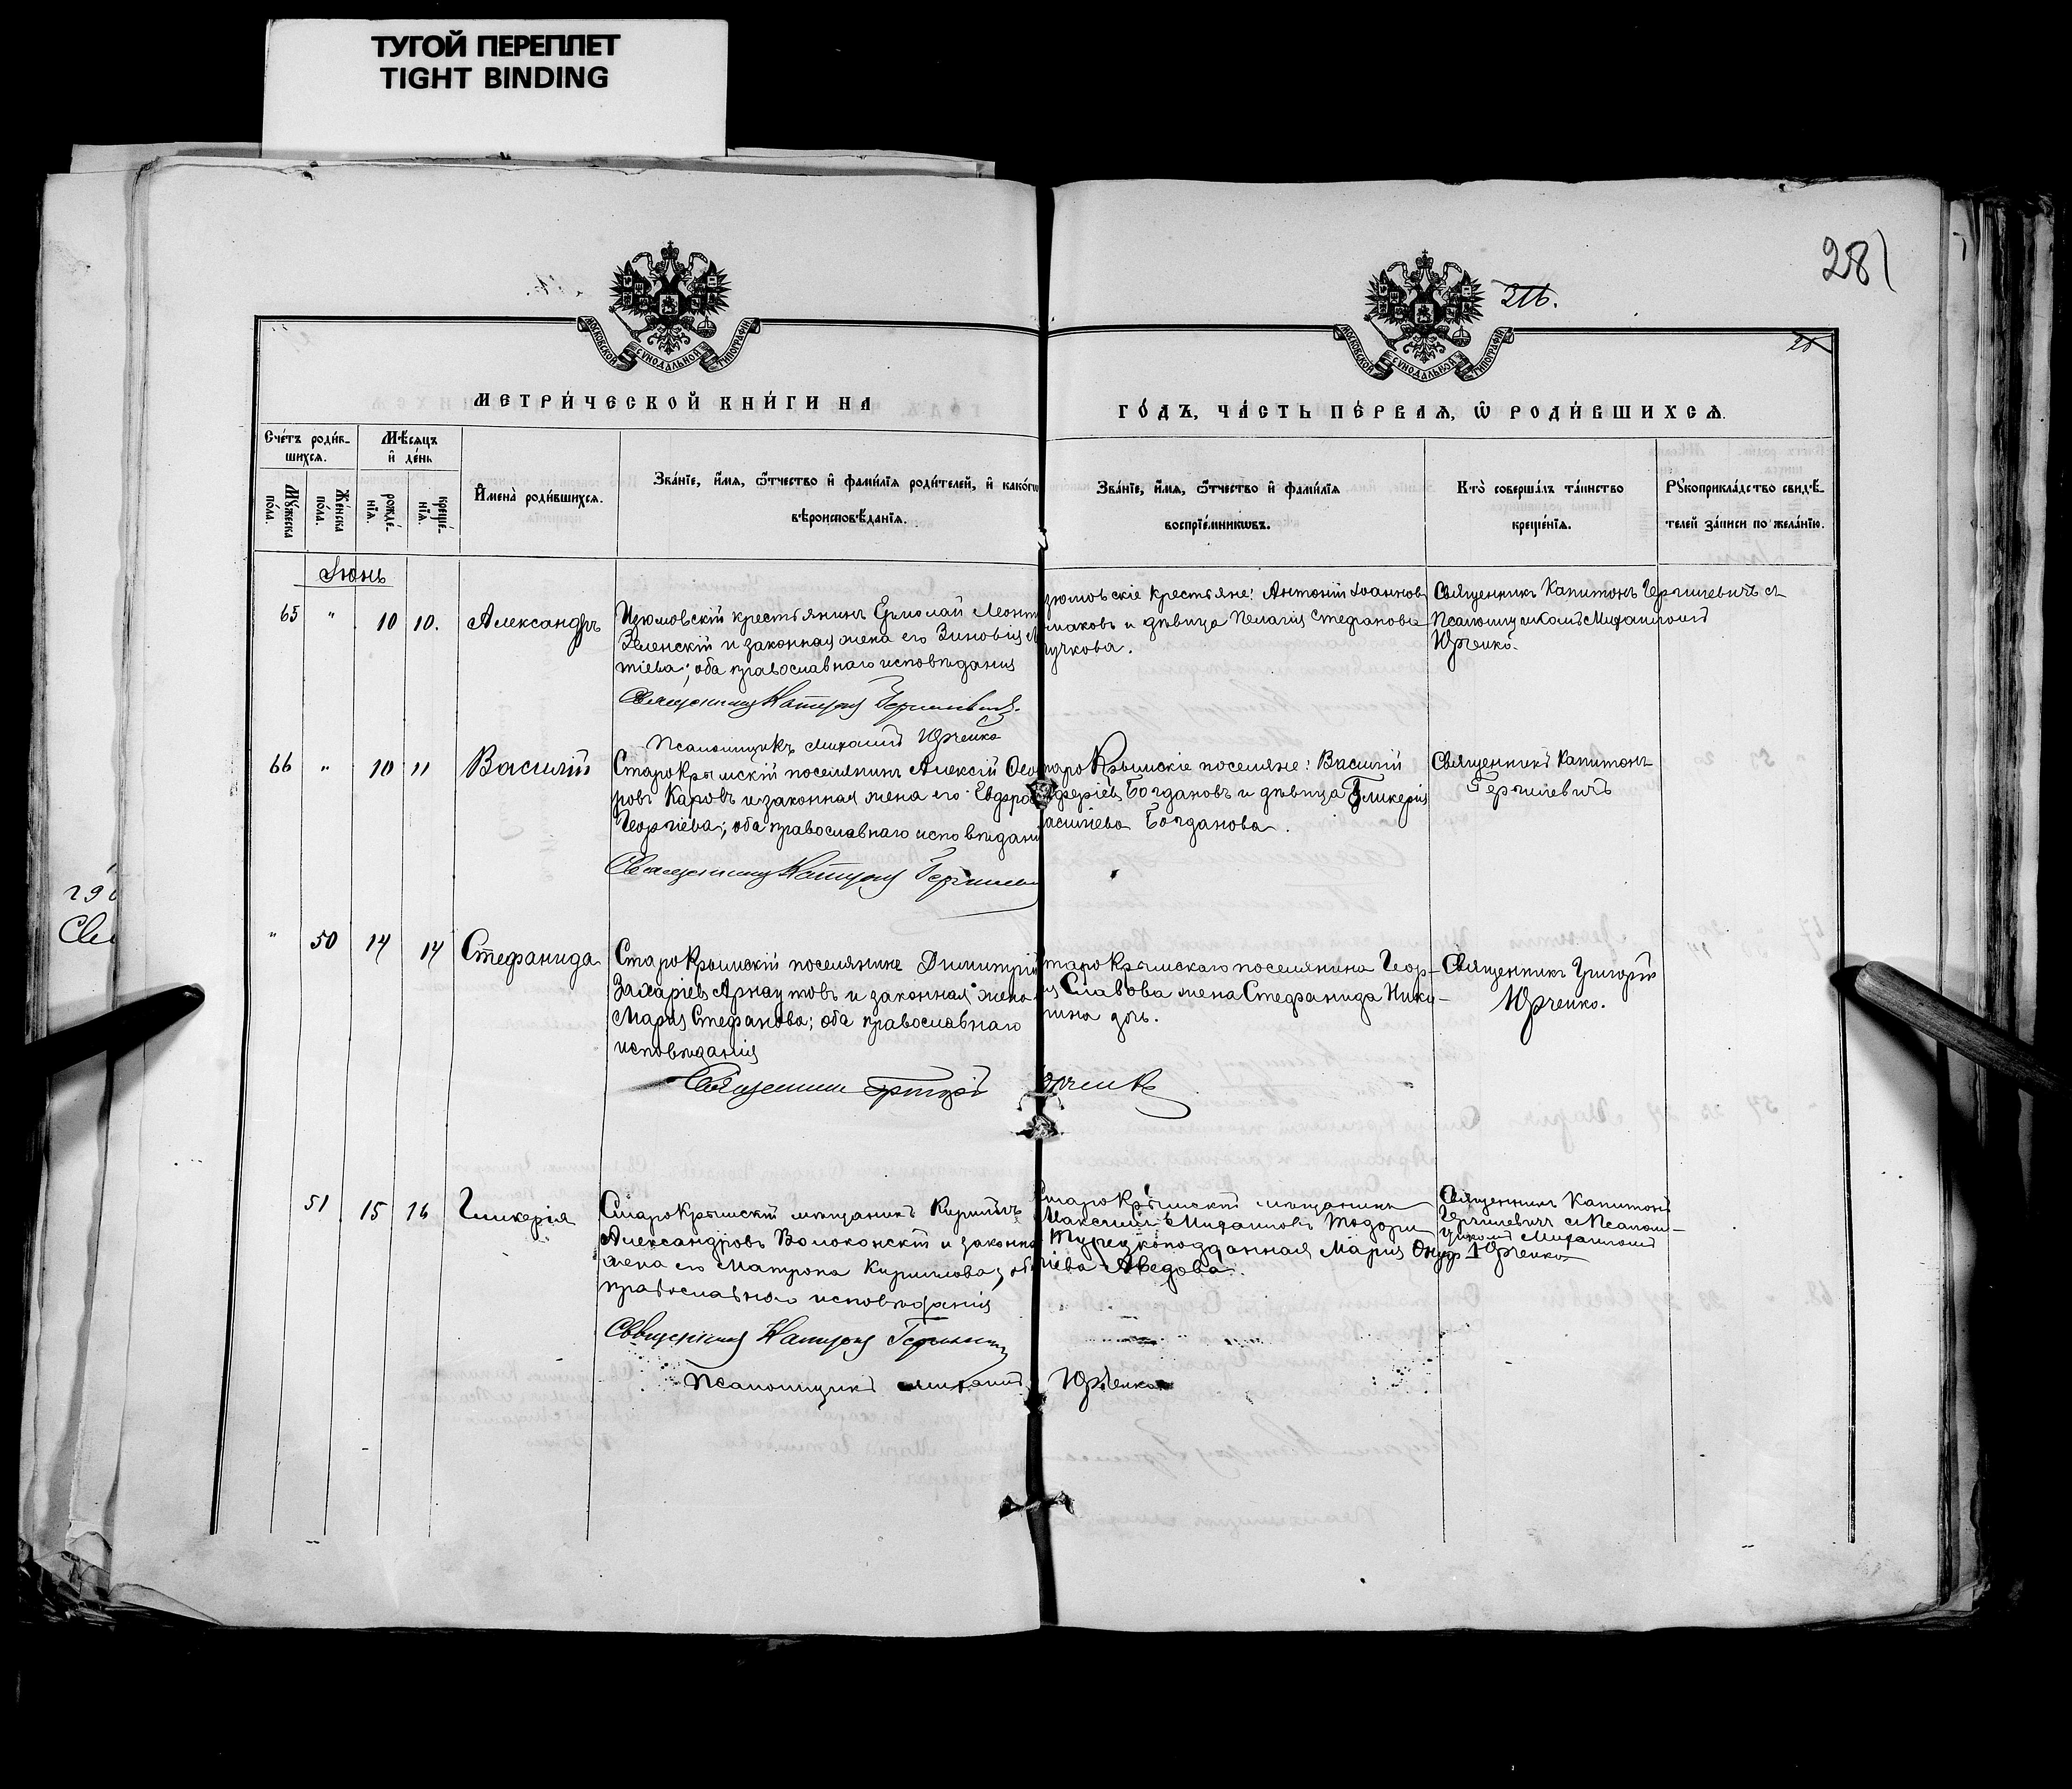 ТУГОЙ ПЕРЕПЛЕТ
TIGHT BINDING
281
216.
28
МОСКОВСКОЙ СѴНОДАЛЬНОЙ ТИПОГРАФІИ
МОСКОВСКОЙ СѴНОДАЛЬНОЙ ТИПОГРАФІИ
МЕТРИ́ЧЕСКОЙ КНИ́ГИ НА
ГО́ДЪ, ЧА́СТЬ ПЕ́РВАѦ, Ѽ РОДИ́ВШИХСѦ.
Сче́тъ роди́в-
шихсѧ.
Мѣ́сѧцъ
и҆ де́нь
Мꙋ́жеска
по́ла.
Же́нска
по́ла.
рожде́-
нїѧ.
креще́-
нїѧ.
И҆мена̀ роди́вшихсѧ.
Зва́нїе, и҆́мѧ, ѻ҆́тчество и҆ фами́лїѧ роди́телей, и҆ како́гѡ
вѣроисповѣ́данїѧ.
Зва́нїе, и҆́мѧ, ѻ҆́тчество и҆ фами́лїѧ
воспрїе́мникѡвъ.
Кто̀ соверша́лъ та́инство
креще́нїѧ.
Рꙋкоприкла́дство свидѣ́-
телей за́писи по жела́нїю.
Іюнь
65 " 10 10. Александръ
Изюмовскій крестьянинъ Ермолай Леонт
Зеленскій и законная жена его Зиновія М
тіева; оба православнаго исповѣданія
Священникъ Капитонъ Гергилевичъ.
Псаломщикъ Михаилъ Юрченко
зюмовскіе крестьяне: Антоній Іоаннов
маковъ и дѣвица Пелагія Стефанова
учкова.
Священникъ Капитонъ Гергилевичъ съ
Псаломщикомъ Михаиломъ
Юрченко.
66 " 10 11 Василій
Старокрымскій поселянинъ Алексій Ѳео
ровъ Каровъ и законная жена его Евфро
Георгіева; оба православнаго исповѣдані
Священникъ Капитонъ Гергилев
таро Крымскіе поселяне: Василій
Богдановъ и дѣвица Гликерія
асиліева Богданова.
Священникъ Капитонъ
Гергилевичъ
" 50 14 14 Стефанида
Старокрымскій поселянинъ Димитрій
Захаріевъ Арнаутовъ и законная жена
Марія Стефанова; оба православнаго
исповѣданія
Священникъ Григорій Юрченко
таро Крымскаго поселянина Геор-
ія Славова жена Стефанида Нику-
лина дочь.
Священникъ Григорій
Юрченко.
51 15 16 Гликерія
Старокрымскій мѣщанинъ Кириллъ
Александровъ Волоконскій и законна
жена его Матрона Кириллова; об
православнаго исповѣданія
Священникъ Капитонъ Гергилевичъ
Псаломщикъ Михаилъ Юрченко
Старокрымскій мѣщанинъ
Максимъ Михаиловъ Тодори
Турецкоподданная Марія Онуф
ріева Аведова.
Священникъ Капитонъ
Гергилевичъ съ Псалом-
щикомъ Михаиломъ
Юрченко